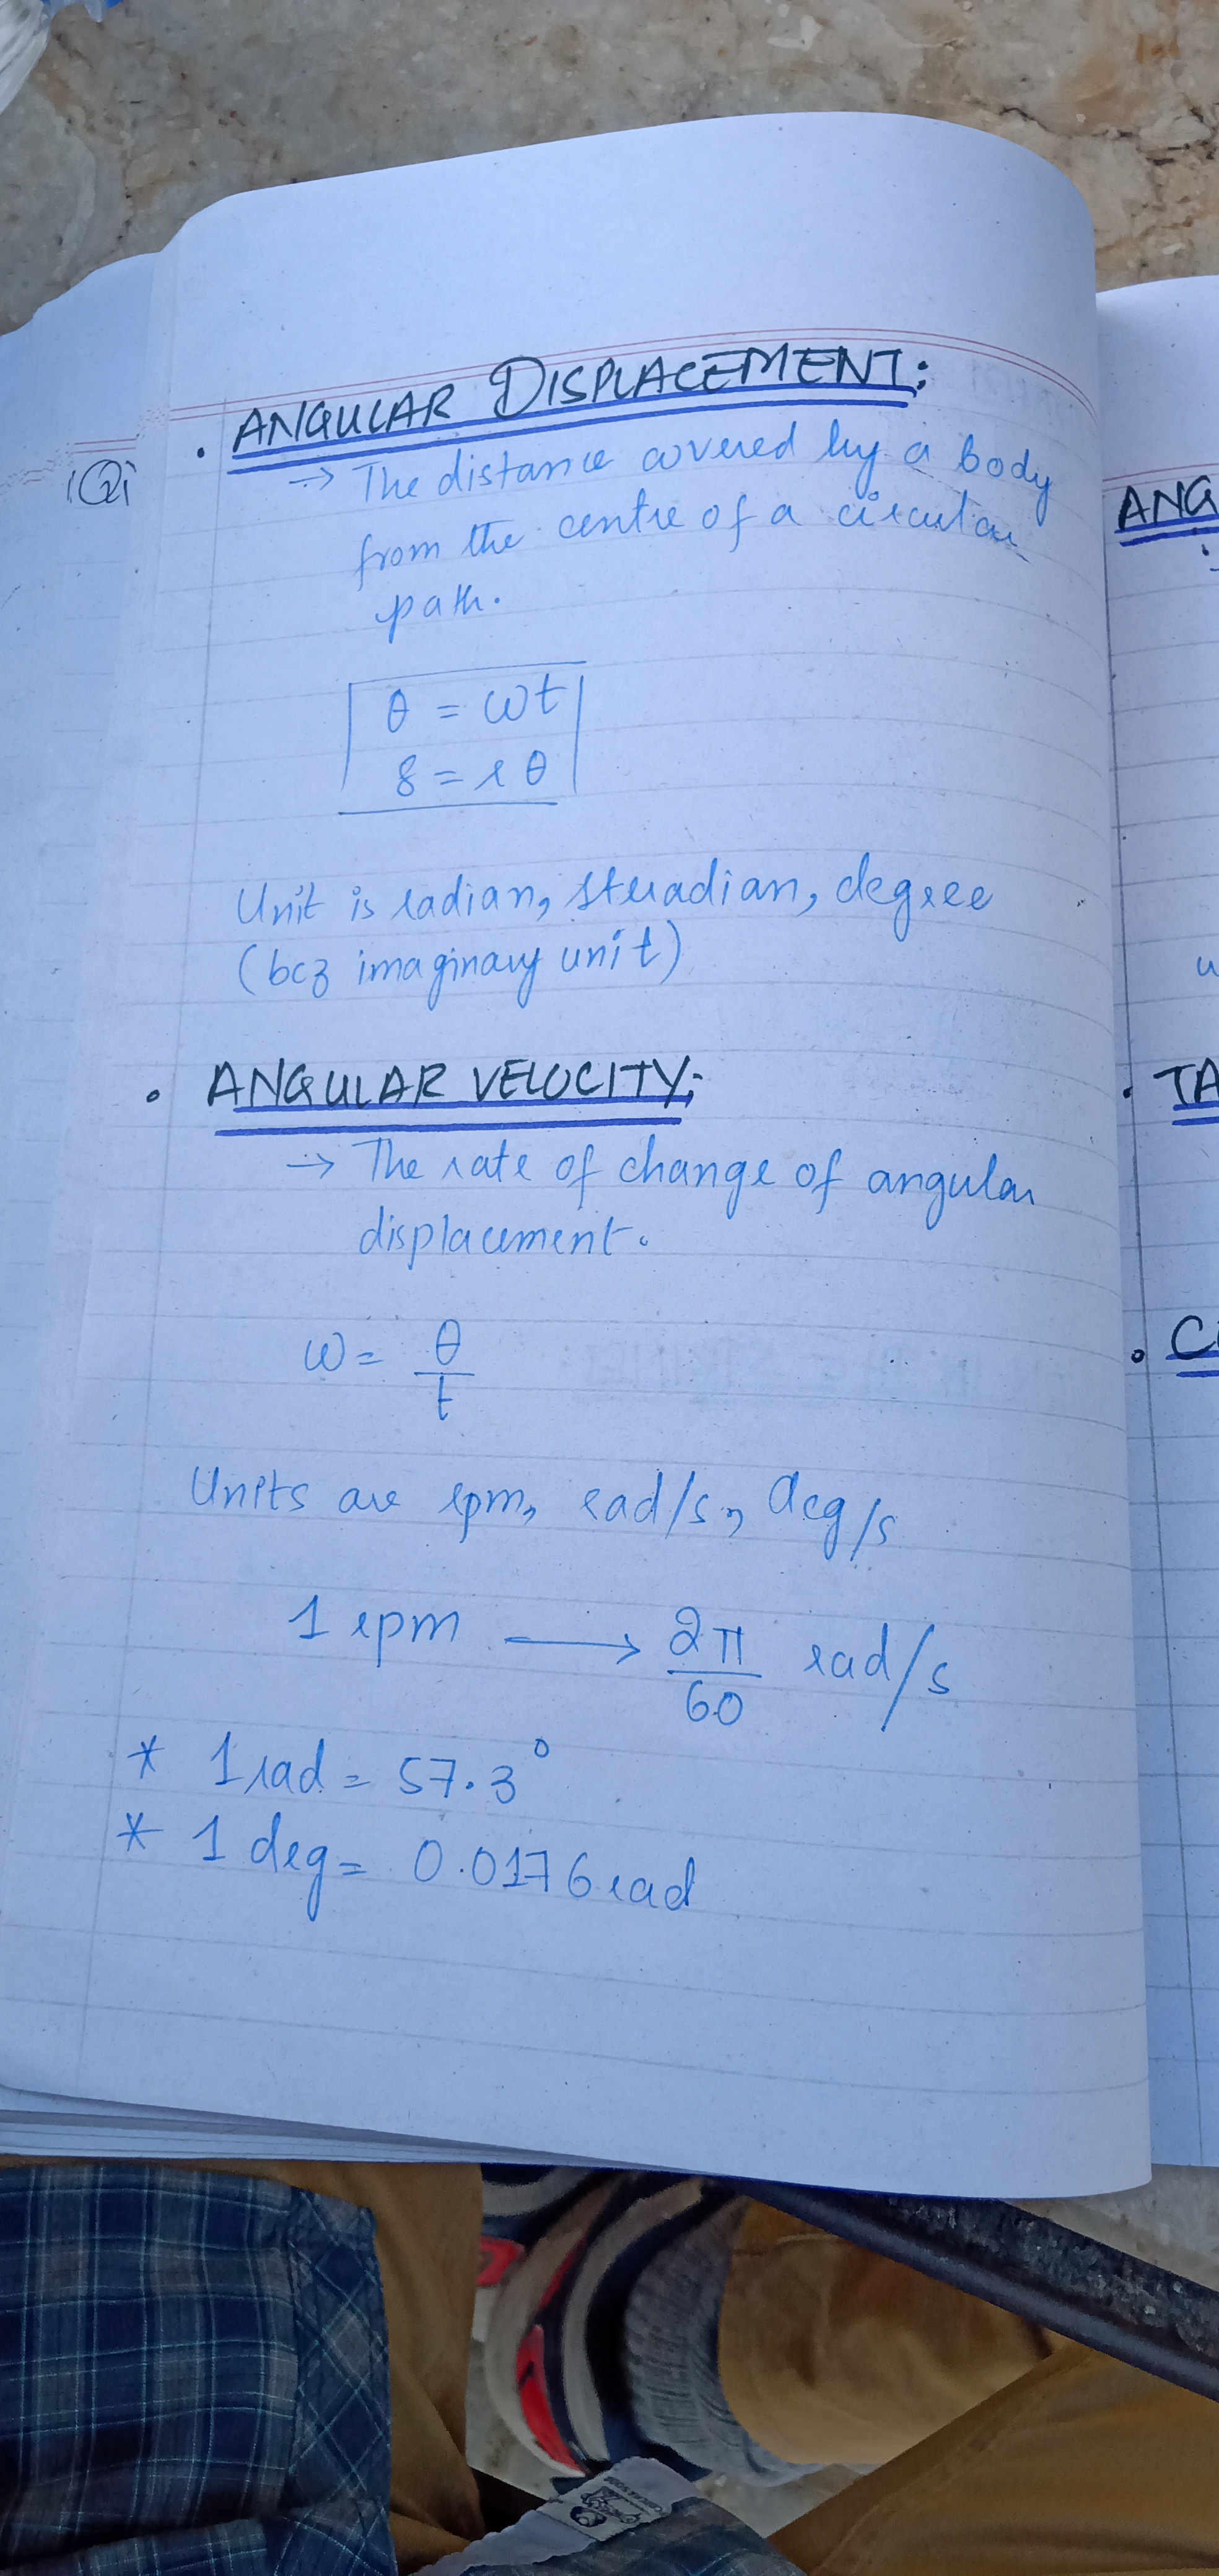 ANGULAR DISPLACEMENT:
→ The distance covered by a body
from the centre of a circular
path.
θ = ωt
S = rθ
Unit is radian, steradian, degree
(bcz imaginary unit)
• ANGULAR VELOCITY:
→ The rate of change of angular
displacement.
ω = θ/t
Units are rpm, rad/s, deg/s
1 rpm → 2π/60 rad/s
* 1 rad = 57.3°
* 1 deg = 0.0176 rad
ANG
u
• TA
• C